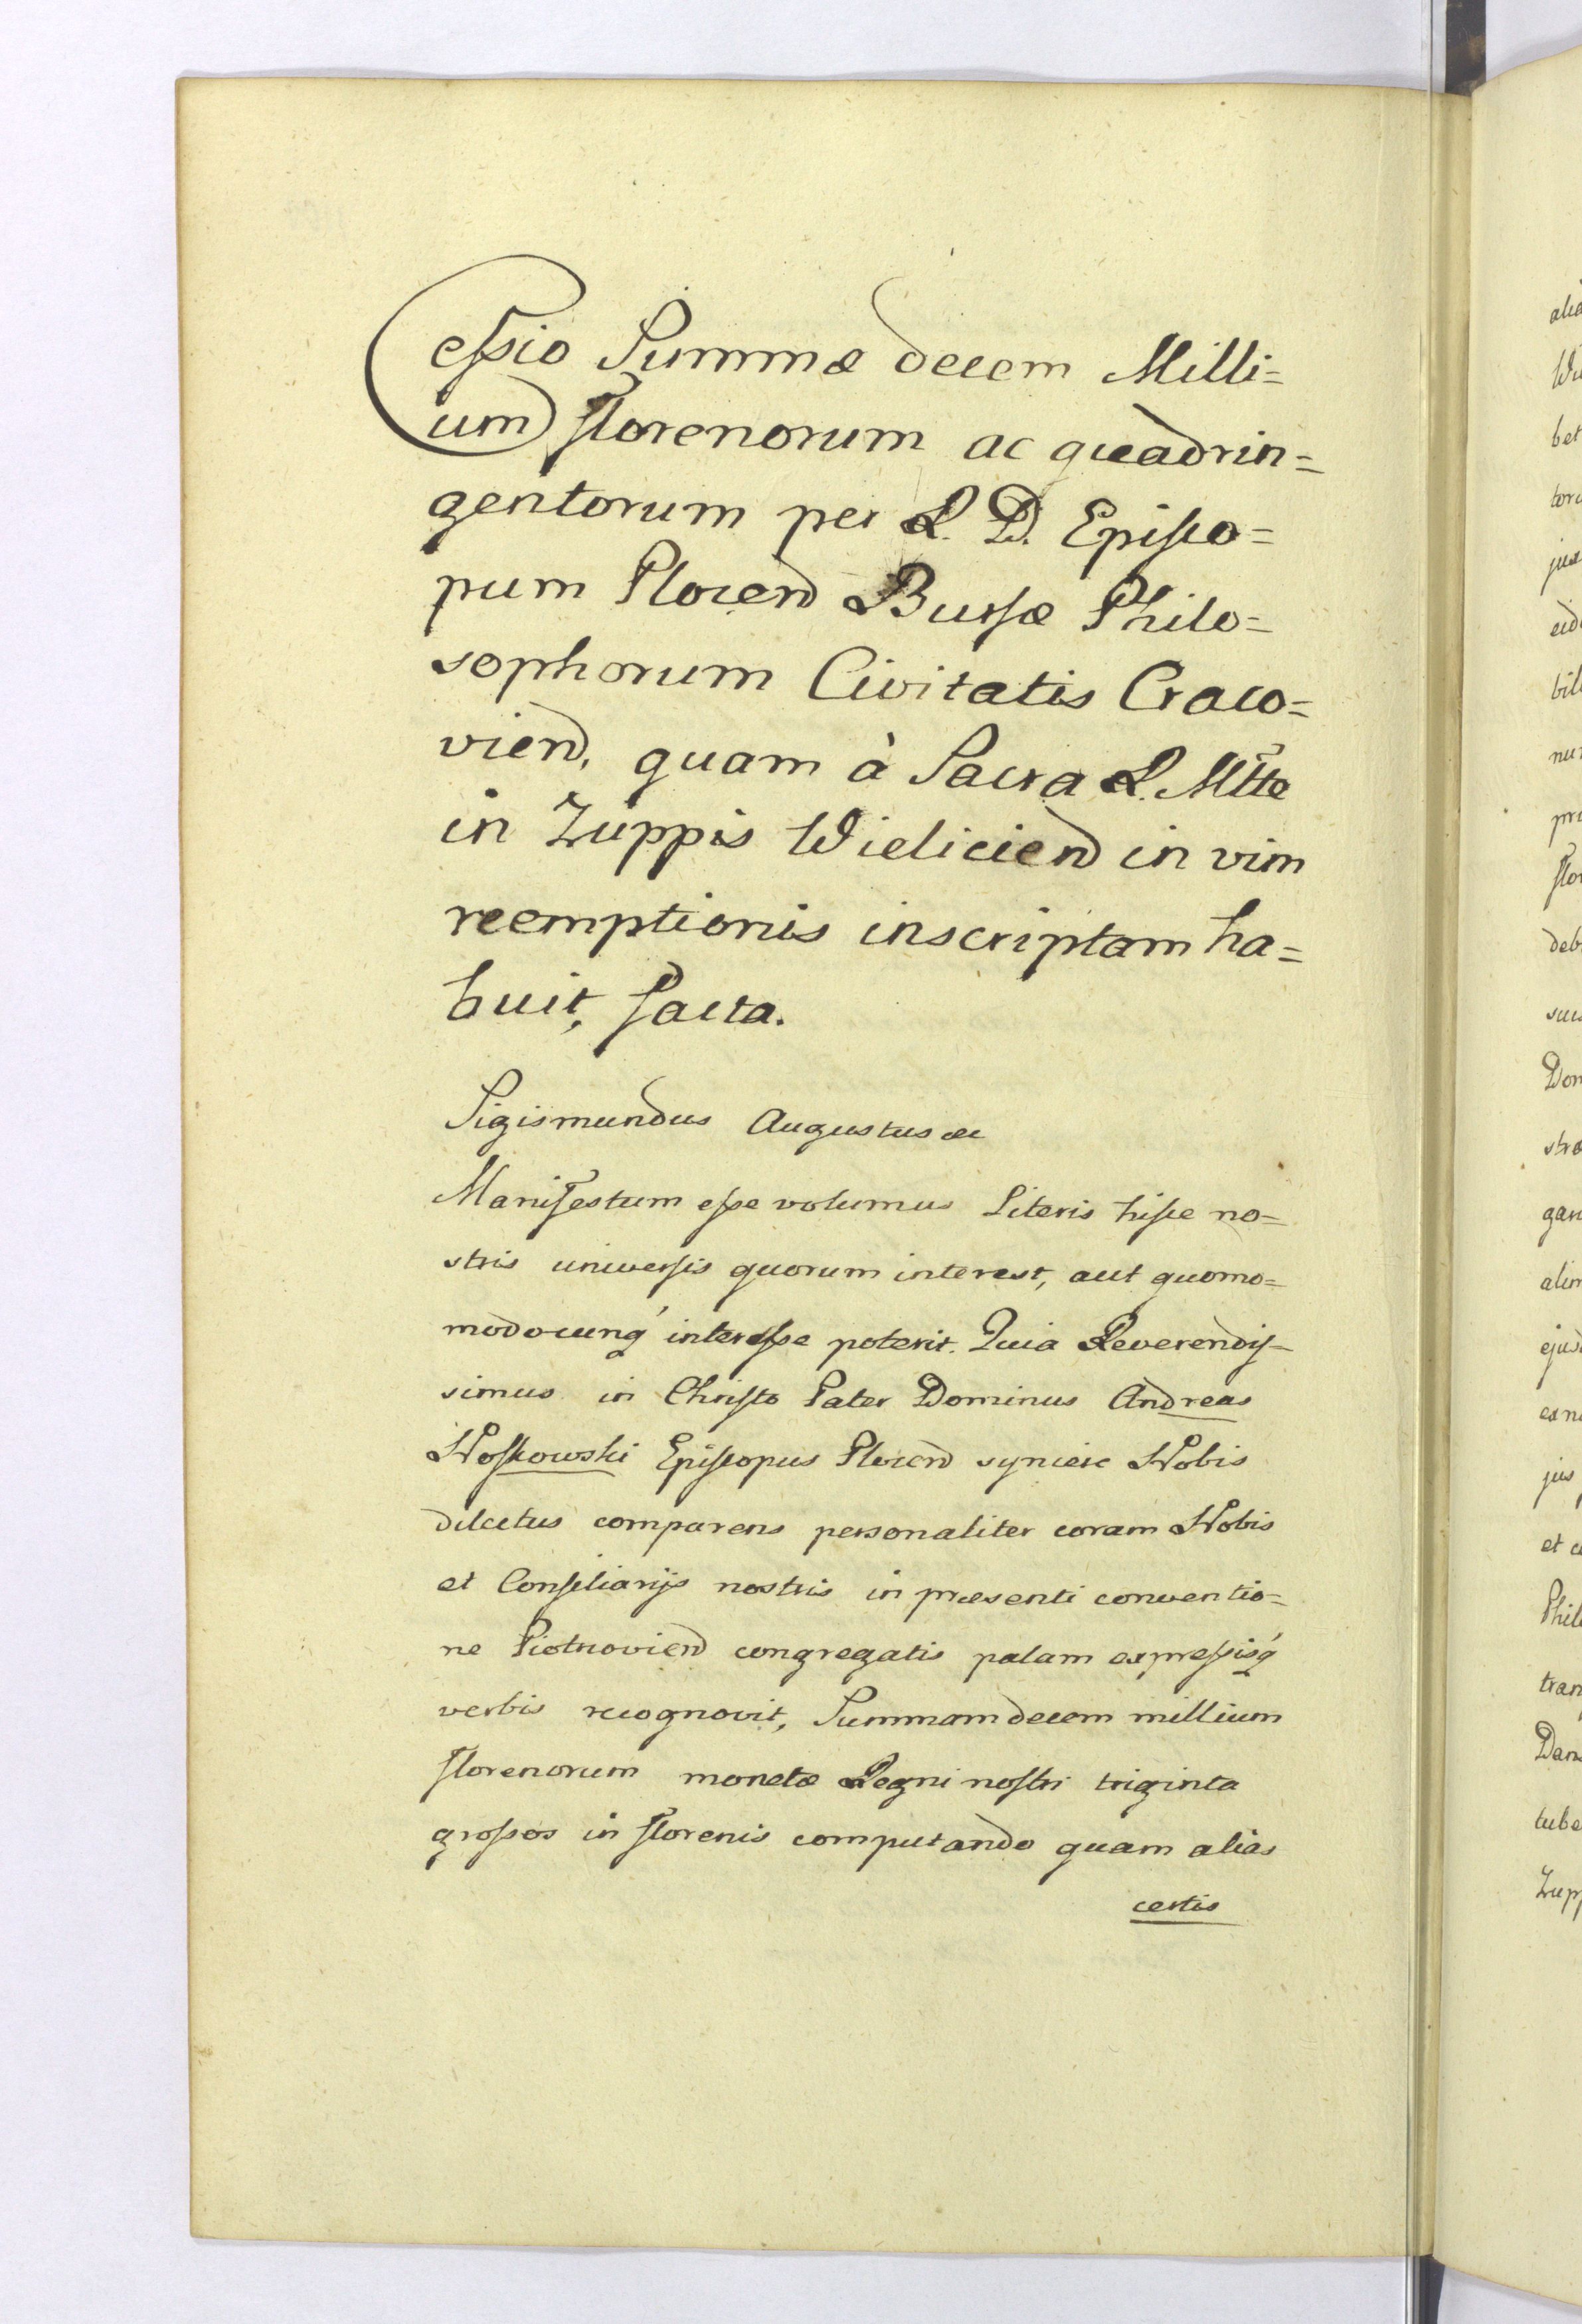 Cessio Summæ decem Milli=
um florenorum ac quadrin=
gentorum per R. D. Episco=
pum Plocen̄ Bursæ Philo=
sophorum Civitatis Craco=
vien̄, quam à Sacra R. Mtte
in Zuppis Wielicien̄ in vim
reemptionis inscriptam ha=
buit, facta.
Sigismundus Augustus &c
Manifestum esse volumus Literis hisce no=
stris universis quorum interest, aut quomo=
modocunq́ interesse poterit. Quia Reverendis=
simus in Christo Pater Dominus Andreas
Noskowski Episcopus Plocen̄ syncere Nobis
dilectus comparens personaliter coram Nobis
et Consiliarijs nostris in præsenti conventio=
ne Piotrcovien̄ congregatis palam expressisq́
verbis recognovit, Summam decem millium
florenorum monetæ Regni nostri triginta
grossos in florenis computando quam alias
certis